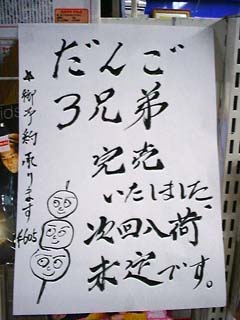 だんご
3兄弟
完売
いたしました、
次回入荷
未定です。
★御予約取ります